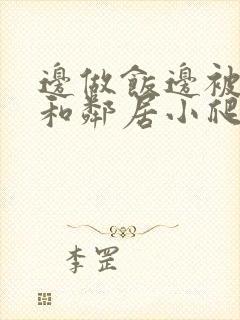 邊做飯邊被
和鄰居小爬
李罡